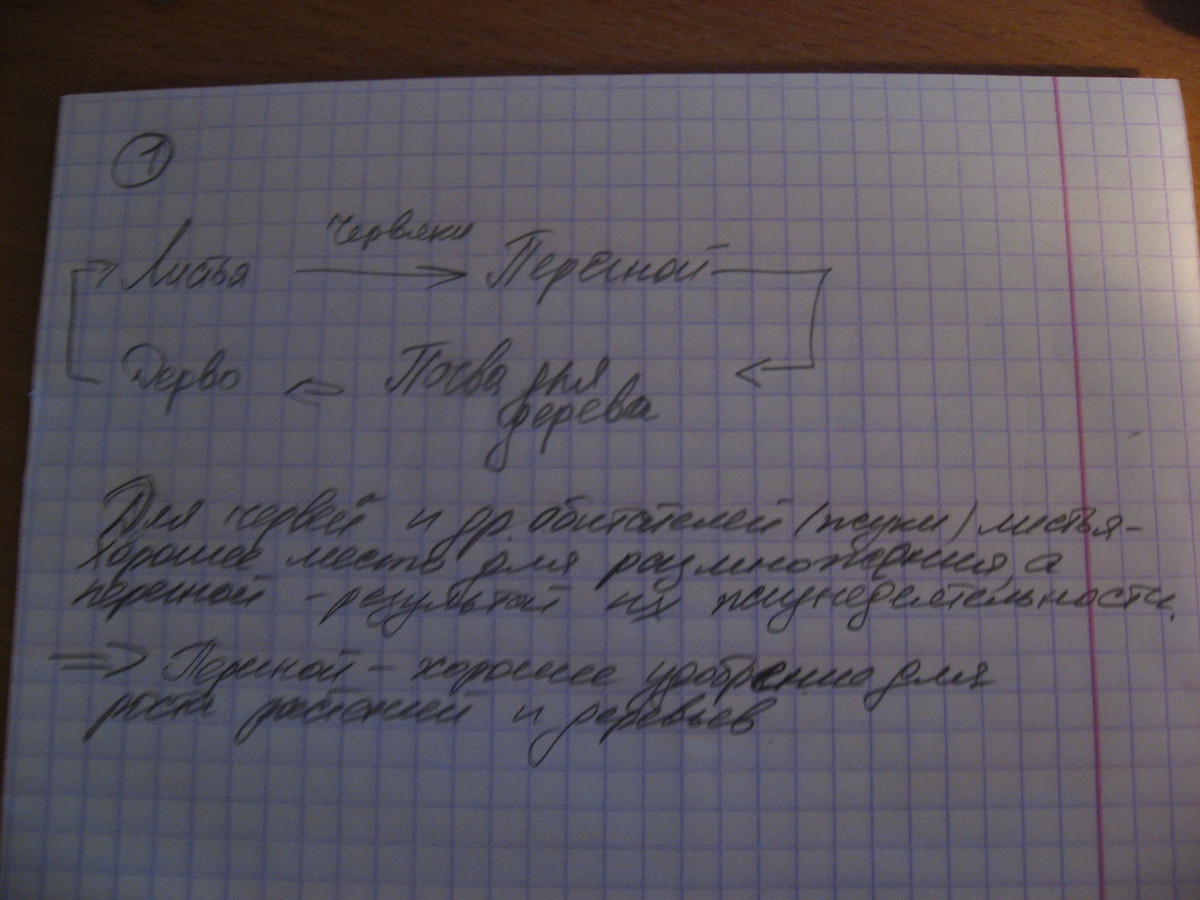 1
Червяки
Листья Перегной
Дерво Почва для
дерева
Для червей и др. обитателей (жуки) листья -
хорошее место для размножения, а
перегной - результат их жизнедеятельности.
=> Перегной - хорошее удобрение для
роста растений и деревьев